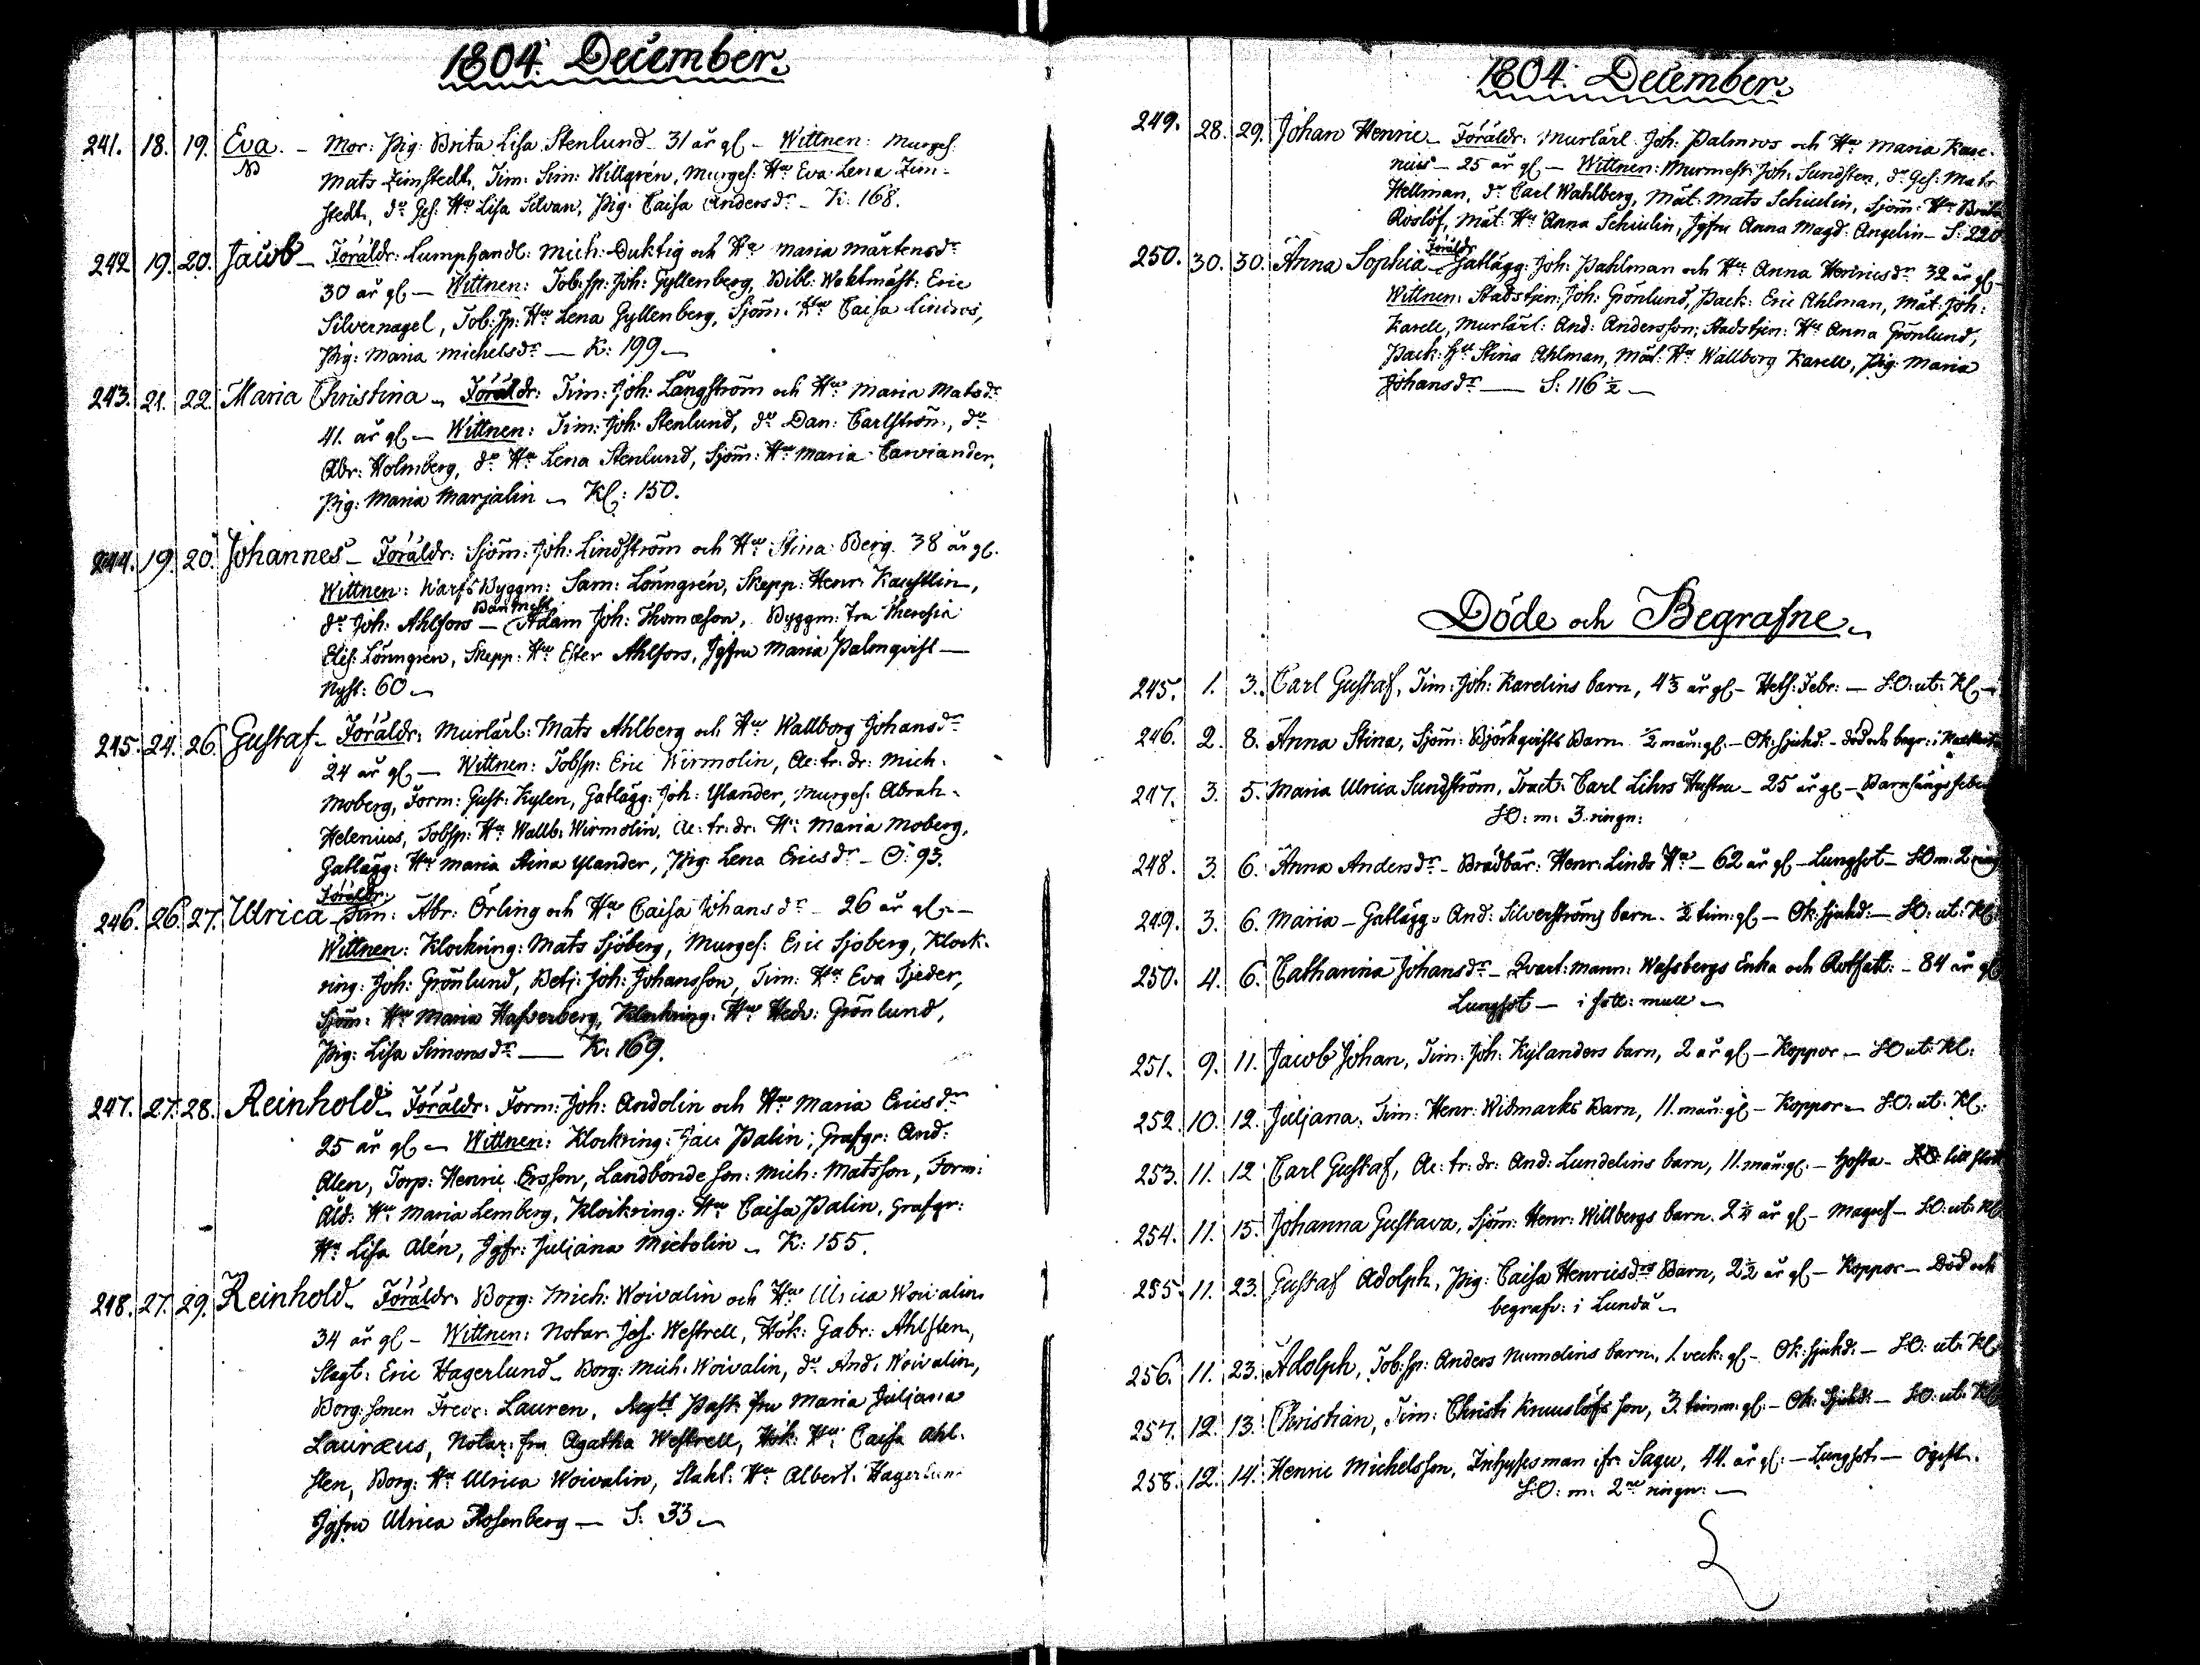 1804. December.
241. 18. 19. Eva. – Mor: Pig: Brita Lisa Stenlund 31 år gl – Wittnen: Murges:
Mats Zimstedt, Tim: Sim: Willgrén, Murges: Hu Eva Lena Zim-
stedt, do Ges: Hu Lisa Silvan, Pig: Caisa Andersdr – K: 168.
242 19. 20. Jacob – Föräldr: Lumphandl: Mich: Duktig och Hu Maria Mårtensdr
30 år gl – Wittnen: Tob:sp: Joh: Gyllenberg, Bibl: Waktmäst: Eric
Silvernagel, Tob:sp: Hu Lena Gyllenberg, Sjöm: Hu Caisa Linéros,
Pig: Maria Michelsdr – K: 199 –
243. 21. 22. Maria Christina – Föräldr: Tim: Joh: Långström och Hu Maria Matsdr
41. år gl – Wittnen: Tim: Joh: Stenlund, do Dan: Carlström, do
Abr: Holmberg, do Hu Lena Stenlund, Sjöm: Hu Maria
Pig: Maria Marjalin – Kl: 150.
244. 19. 20. Johannes – Föräldr: Sjöm: Joh: Lindström och Hu Stina Berg 38 år gl.
Wittnen: Warfs Byggm: Sam: Lönngrén, Skepp: Henr:
do Joh: Ahlfors – Adam Joh: Thomæson, Byggm: fru Theresia
Elis: Lönngrén, Skepp: Hu Ester Ahlfors, Jgfru Maria Palmqvist –
Nyst: 60 –
245. 24. 26. Gustaf – Föräldr: Murlärl: Mats Ahlberg och Hu Wallborg Johansdr
24 år gl – Wittnen: Tobsp: Eric Wirmolin, Ac: tr: dr: Mich:
Moberg, Form: Gust: Kylen, Gatlägg: Joh: Ylander, Murges: Abrah:
Helenius, Tobsp: Hu Wallb: Wirmolin, Ac: tr: dr: Hu Maria Moberg,
Gatlägg: Hu Maria Stina Ylander, Pig: Lena Ericsdr – O: 93.
Föräldr:
246. 26. 27. Ulrica – Tim: Abr: Örling och Hu Caisa Johansdr – 26 år gl –
Wittnen: Klockring: Mats Sjöberg, Murges: Eric Sjöberg, Klock-
ring: Joh: Grönlund, Betj: Joh: Johansson, Tim: Hu Eva Tjeder,
Sjöm: Hu Maria Hafverberg, Klockring: Hu Hedv: Grönlund,
Pig: Lisa Simonsdr – K: 169.
247. 27. 28. Reinhold – Föräldr: Form: Joh: Andolin och Hu Maria Ericsdr
25 år gl – Wittnen: Klockring: Jac: Palin, Grafgr: And:
Alen, Torp: Henric Ersson, Landbonde son: Mich: Matsson, Form:
Åld: Hu Maria Lemberg, Klockring: Hu Caisa Palin, Grafgr:
Hu Lisa Alén, Jgfr: Juliana Mietolin – K: 155.
248. 27. 29. Reinhold – Föräldr: Borg: Mich: Woivalin och Hu Ulrica Woivalin
34 år gl – Wittnen: Notar: Jos: Westrell, Hök: Gabr: Ahlsten,
Slagt: Eric Hagerlund – Borg: Mich: Woivalin, do And: Woivalin,
Borg: sonen Fredr: Lauren, Past: fru Maria Juliana
Lauræus, Notar: fru Agatha Westrell, Hök: Hu Caisa Ahl-
sten, Borg: Hu Ulrica Woivalin, Slakt: Hu Albert: Hagerlund
Jgfru Ulrica Rosenberg – S: 33 –
1804. December.
249. 28. 29. Johan Henric – Föräldr: Murlärl: Joh: Palmros och Hu Maria Kase-
nius – 25 år gl – Wittnen: Murmest: Joh: Sundsten, do Ges: Mats
Hellman, do Carl Wahlberg, Mät: Mats Schiulin, Sjöm: Hu Brita
Roslöf, Mät: Hu Anna Schiulin, Jgfru Anna Magd: Angelin – S: 220
Föräldr
250. 30. 30. Anna Sophia – Gatlägg: Joh: Pahlman och Hu Anna Henricsdr 32 år gl –
Wittnen: Stadstjen: Joh: Grönlund, Pack: Eric Ahlman, Mät: Joh:
Karell, Murlärl: And: Andersson, Stadstjen: Hu Anna Grönlund,
Pack: Hu Stina Ahlman, Mät: Hu Wallborg Karell, Pig: Maria
Johansdr – S: 116 ½ –
Döde och Begrafne –
245. 1. 3. Carl Gustaf, Tim: Joh: Karelins barn, 4⅓ år gl – Hets: Febr: – S:O: ut: Kl –
246. 2. 8. Anna Stina, Sjöm: Björkqvists Barn ½ mån: gl – Ok: sjukd: – död och begr: i
247. 3. 5. Maria Ulrica Sundström, Tract: Carl Lihrs Hustru – 25 år gl – Barnsängsfeber
S:O: m: 3. ringn:
248. 3. 6. Anna Andersdr – Brädbär: Henr: Linds Hu – 62 år gl – Lungsot – S:O m: 2 ring
249. 3. 6. Maria – Gatlägg: And: Silverströms barn ½ tim: gl – Ok: sjukd: – S:O: ut: Kl:
250. 4. 6. Catharina Johansdr – Qvart: mann: Wassbergs Enka och Rotfatt: – 84 år gl
Lungsot – i fatt: mull –
251. 9. 11. Jacob Johan, Tim: Joh: Kylanders barn, 2 år gl – Koppor – S:O ut: Kl:
252. 10. 12. Juliana, Tim: Henr: Widmarks Barn, 11. mån: gl – Koppor – S:O: ut: Kl:
253. 11. 12 Carl Gustaf, Ac: tr: dr: And: Lundelins barn, 11. mån: gl – Hosta – S:O: lill
254. 11. 15. Johanna Gustava, Sjöm: Henr: Willbergs barn. 2¼ år gl – Magref – S:O: ut: Kl
255. 11. 23. Gustaf Adolph, Pig: Caisa Henricsdrs Barn, 2½ år gl – Koppor – Död och
begrafv: i Lundo –
256. 11. 23. Adolph, Tob:sp: Anders Numelins barn, 1. veck: gl – Ok: sjukd: – S:O: ut: Kl
257. 12. 13. Christian, Tim: Christi Knuuslöfs son, 3. timm: gl – Ok: Sjukd: – S:O: ut: Kl
258. 12. 14. Henric Michelsson, Inhyses man fr: Sagu, 44. år gl: – Lungsot – Ogift.
S:O: m: 2ne ringn: –